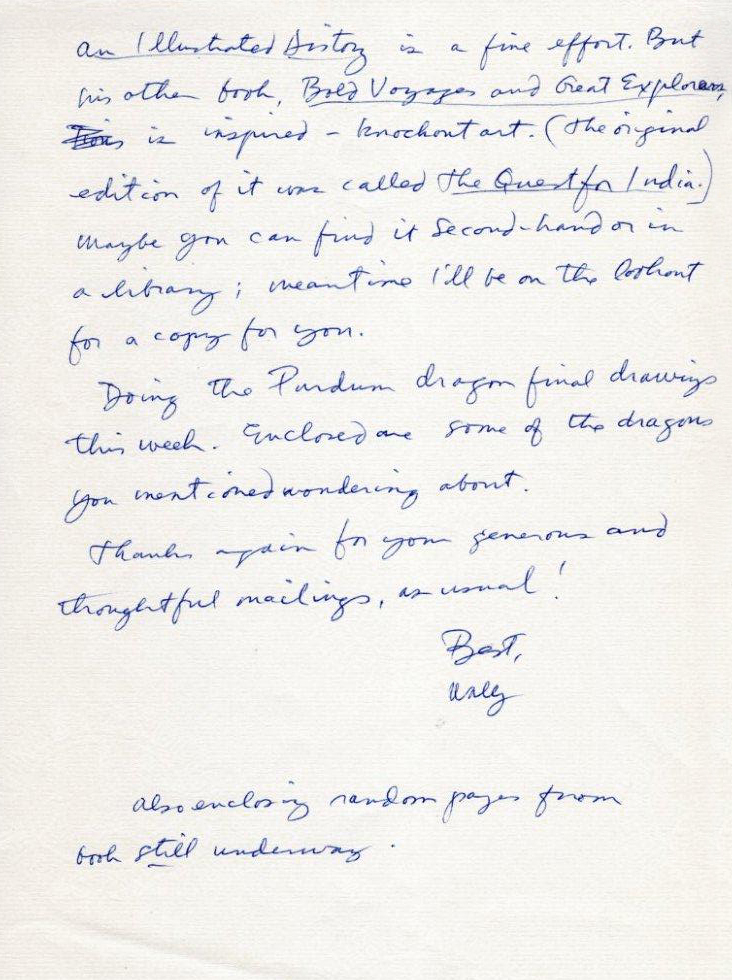 an Illustrated History is a fine effort. But
his other book, Bold Voyages and Great Explorers,
is inspired – knockout art. (The original
edition of it was called The Quest for India.)
Maybe you can find it second-hand or in
a library; meantime I'll be on the lookout
for a copy for you.
Doing the Purdum dragon final drawings
this week. Enclosed are some of the dragons
you mentioned wondering about.
Thanks again for your generous and
thoughtful mailings, as usual!
Best,
Wally
Also enclosing random pages from
book still underway.